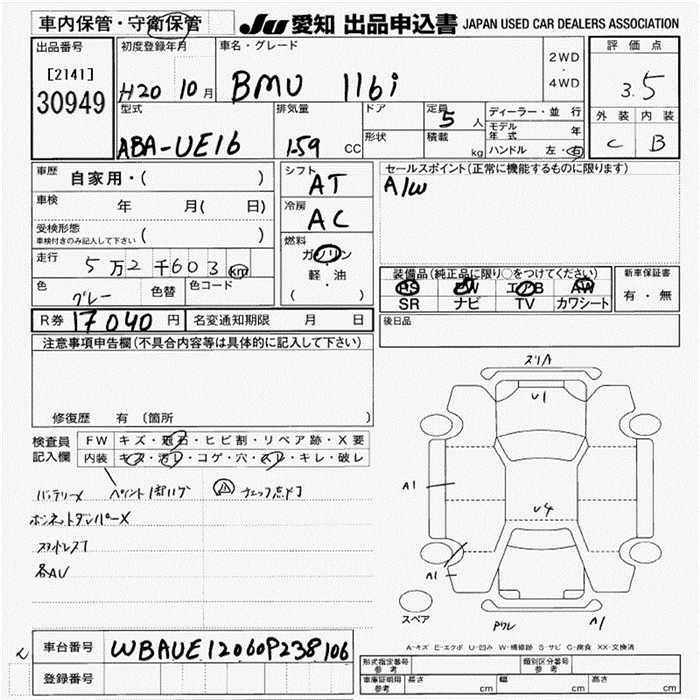 車内保管・守衛保管
JU 愛知 出品申込書 JAPAN USED CAR DEALERS ASSOCIATION
出品番号
[2141]
30949
初度登録年月
H20 10月
車名・グレード
BMU 116i
2WD
・
4WD
評価点
3.5
外装 内装
C B
型式
ABA-UE16
排気量
1.59 CC
ドア
形状
定員
5人
積載
kg
ディーラー・並行
モデル年式 年
ハンドル 左・右
車歴 自家用・( )
車検 年 月( 日)
受検形態
車検付きのみ記入して下さい ( )
走行 5万2千603km
色 グレー 色替 色コード
シフト
AT
冷房
AC
燃料
ガソリン
・
軽・油
( )
セールスポイント(正常に機能するものに限ります)
A/W
装備品(純正品に限り○をつけてください)
PS PW エアB AW
SR ナビ TV カワシート
新車保証書
有・無
R券 17040円 名変通知期限 月 日
後日品
注意事項申告欄(不具合内容等は具体的に記入して下さい)
修復歴 有 (箇所 )
検査員記入欄
FW キズ・飛石・ヒビ割・リペア跡・X要
内装 キズ・汚レ・コゲ・穴・スレ・キレ・破レ
バッテリーX ペイント1部ハゲ チェック点灯
ボンネットダンパーX
各AU
スリA
U1
A1
U4
A1
A1
スペア
A-キズ E-エクボ U-凹み W-補修跡 S-サビ C-腐食 XX-交換済
車台番号 WBAUE12060P238106
登録番号
形式指定番号 参考
類別区分番号 参考
車庫証明用 参考 長さ cm 幅 cm 高さ cm